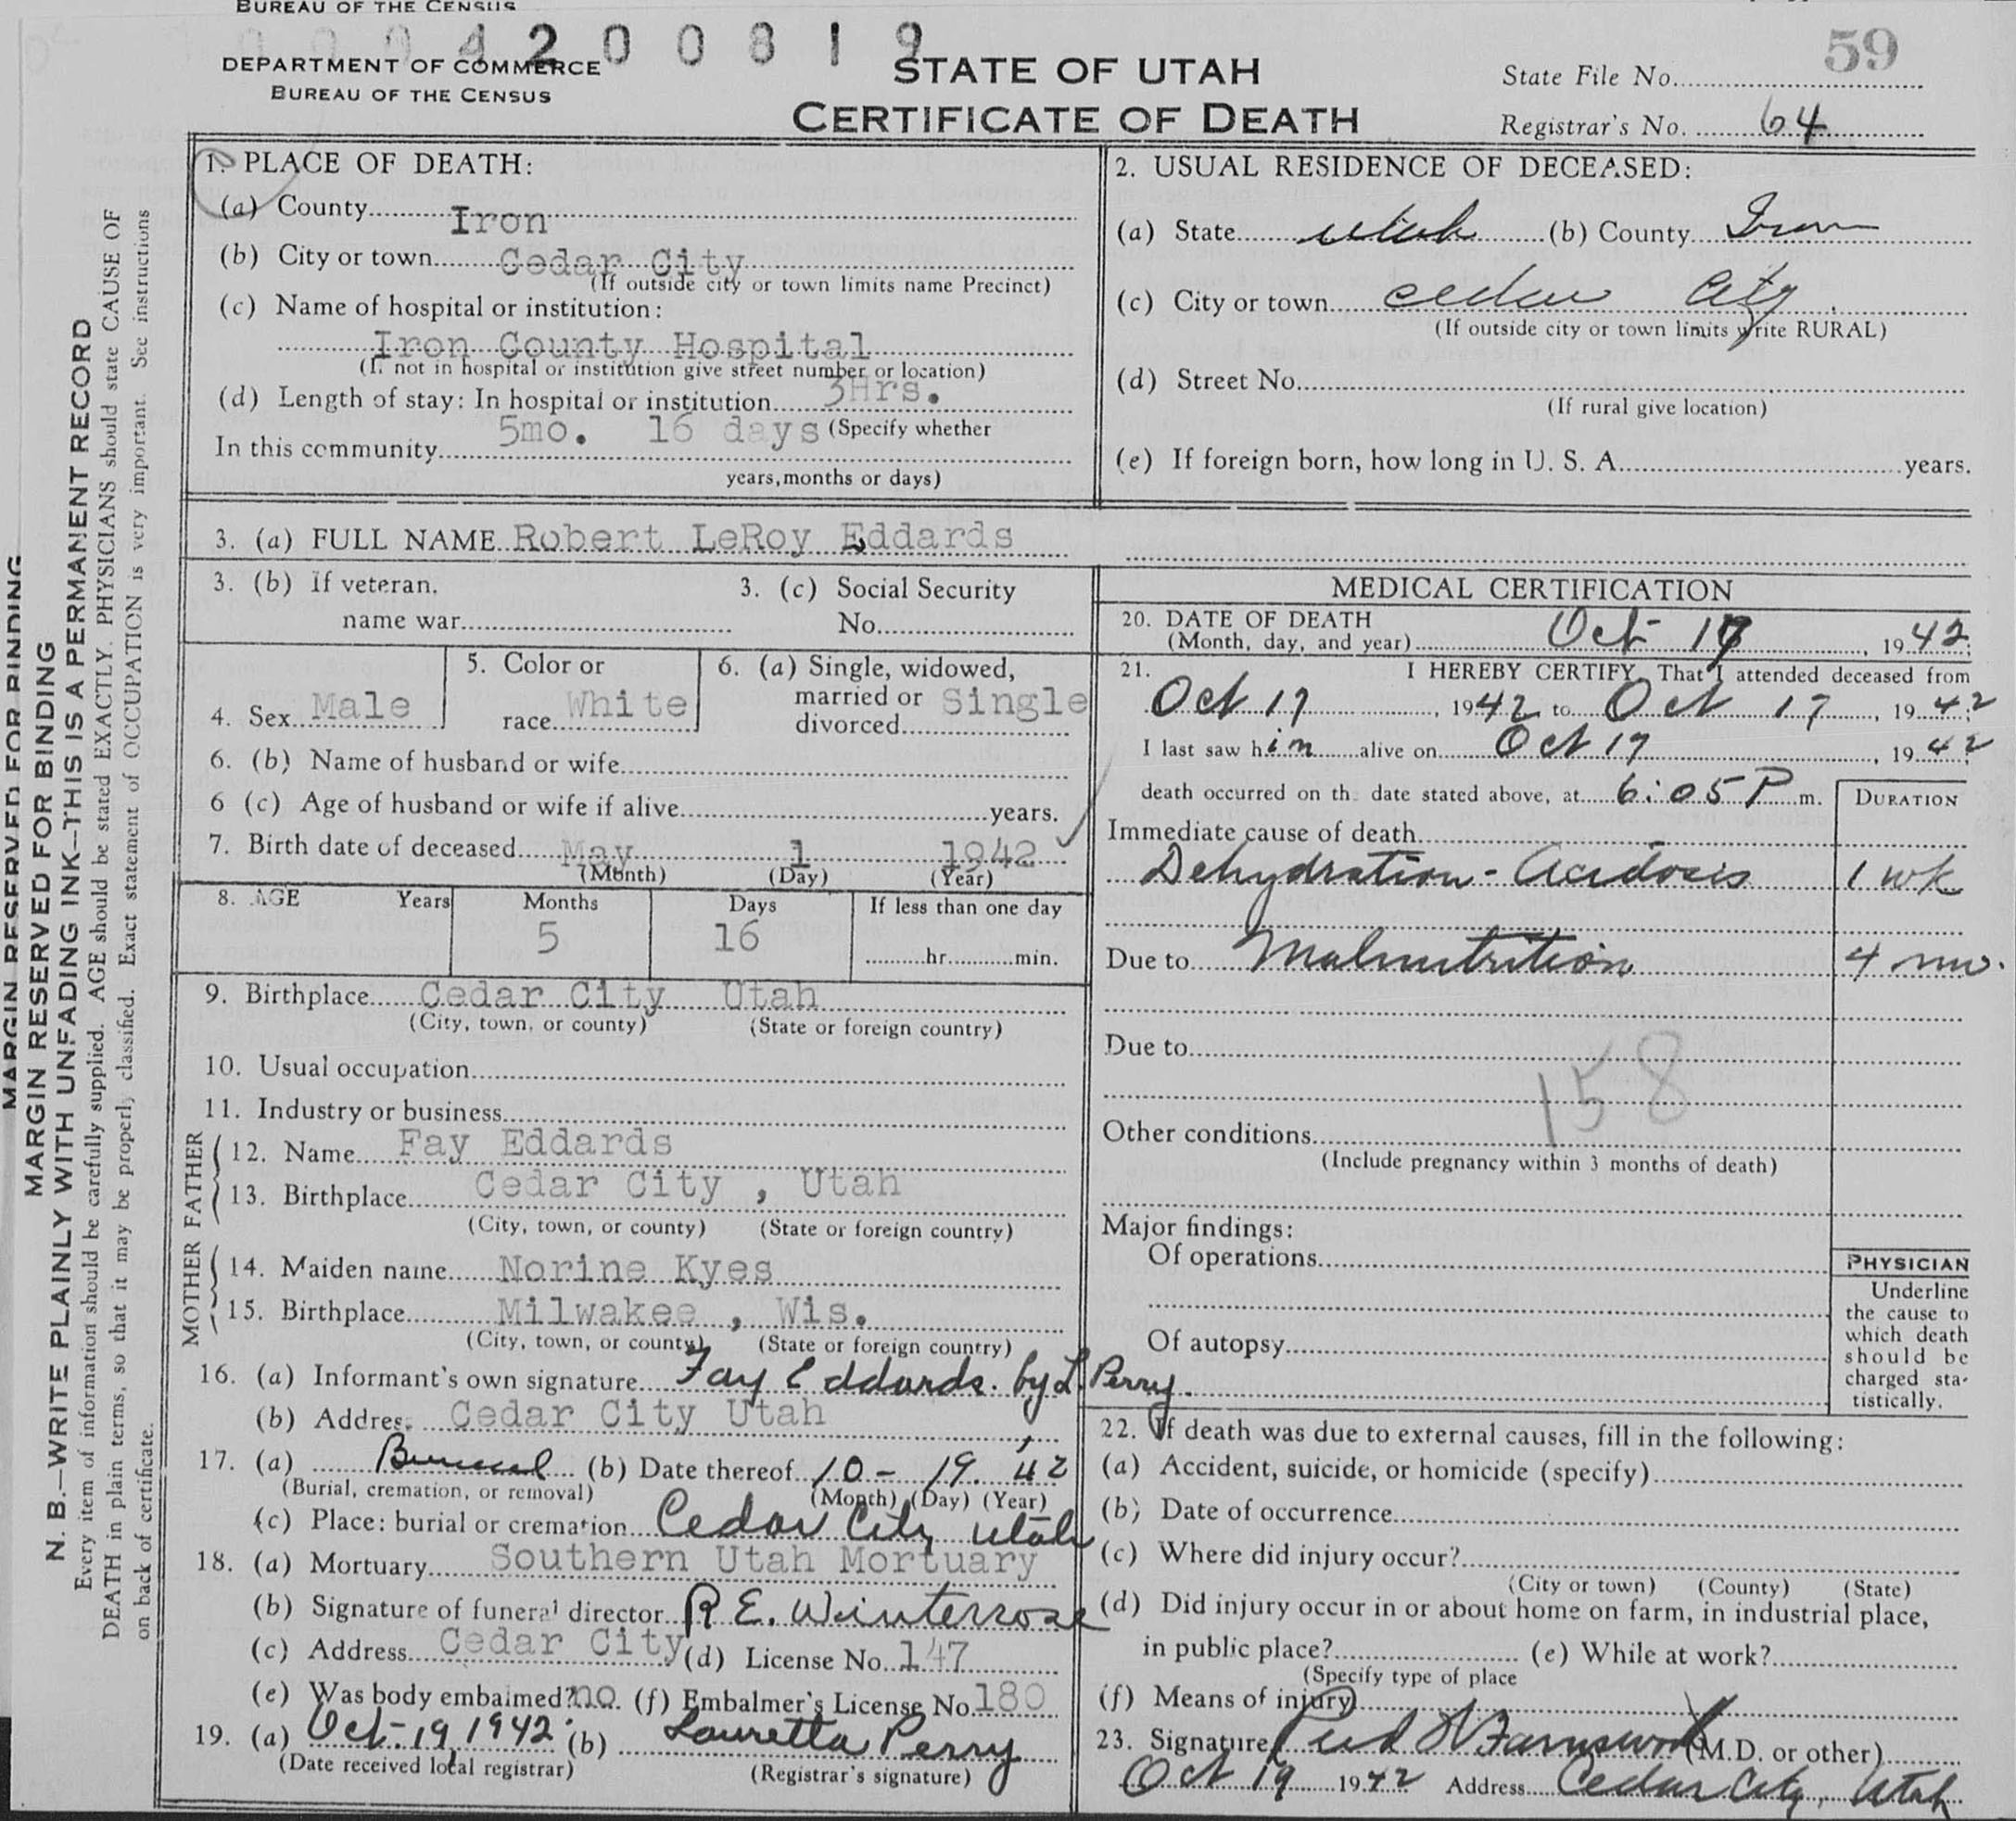 BUREAU OF THE CENSUS
4 2 0 0 8 1 9
59
DEPARTMENT OF COMMERCE
BUREAU OF THE CENSUS
STATE OF UTAH
CERTIFICATE OF DEATH
State File No.
Registrar's No. 64
1. PLACE OF DEATH:
(a) County Iron
(b) City or town Cedar City
(If outside city or town limits name Precinct)
(c) Name of hospital or institution:
Iron County Hospital
(If not in hospital or institution give street number or location)
(d) Length of stay: In hospital or institution 3Hrs.
5mo. 16 days (Specify whether
In this community
years, months or days)
2. USUAL RESIDENCE OF DECEASED:
(a) State Utah (b) County Iron
(c) City or town Cedar City
(If outside city or town limits write RURAL)
(d) Street No.
(If rural give location)
(e) If foreign born, how long in U. S. A. years.
3. (a) FULL NAME Robert LeRoy Eddards
3. (b) If veteran, name war
3. (c) Social Security No.
4. Sex Male
5. Color or race White
6. (a) Single, widowed, married or divorced Single
6. (b) Name of husband or wife
6 (c) Age of husband or wife if alive years.
7. Birth date of deceased May 1 1942
(Month) (Day) (Year)
8. AGE Years Months Days If less than one day
5 16 hr. min.
9. Birthplace Cedar City Utah
(City, town, or county) (State or foreign country)
10. Usual occupation
11. Industry or business
FATHER
12. Name Fay Eddards
13. Birthplace Cedar City , Utah
(City, town, or county) (State or foreign country)
MOTHER
14. Maiden name Norine Kyes
15. Birthplace Milwakee , Wis.
(City, town, or county) (State or foreign country)
16. (a) Informant's own signature Fay Eddards. by L. Perry.
(b) Address Cedar City Utah
17. (a) Burial (b) Date thereof 10 - 19. '42
(Burial, cremation, or removal) (Month) (Day) (Year)
(c) Place: burial or cremation Cedar City Utah
18. (a) Mortuary Southern Utah Mortuary
(b) Signature of funeral director R E. Winterrose
(c) Address Cedar City (d) License No. 147
(e) Was body embalmed? no. (f) Embalmer's License No. 180
19. (a) Oct. 19 1942. (b) Lauretta Perry
(Date received local registrar) (Registrar's signature)
MEDICAL CERTIFICATION
20. DATE OF DEATH
(Month, day, and year) Oct 17, 1942.
21. I HEREBY CERTIFY, That I attended deceased from
Oct 17, 1942 to Oct 17, 1942;
I last saw him alive on Oct 17, 1942
death occurred on the date stated above, at 6:05 P m.
DURATION
Immediate cause of death
Dehydration - Acidosis 1 wk
Due to Malnutrition 4 mo.
Due to
158
Other conditions
(Include pregnancy within 3 months of death)
Major findings:
Of operations
Of autopsy
PHYSICIAN
Underline
the cause to
which death
should be
charged sta-
tistically.
22. If death was due to external causes, fill in the following:
(a) Accident, suicide, or homicide (specify)
(b) Date of occurrence
(c) Where did injury occur?
(City or town) (County) (State)
(d) Did injury occur in or about home on farm, in industrial place,
in public place? (e) While at work?
(Specify type of place
(f) Means of injury
23. Signature Farnsworth (M.D. or other)
Oct 19 1942 Address Cedar City, Utah
MARGIN RESERVED FOR BINDING
MARGIN RESERVED FOR BINDING
N. B.—WRITE PLAINLY WITH UNFADING INK—THIS IS A PERMANENT RECORD
Every item of information should be carefully supplied. AGE should be stated EXACTLY. PHYSICIANS should state CAUSE OF
DEATH in plain terms, so that it may be properly classified. Exact statement of OCCUPATION is very important. See instructions
on back of certificate.